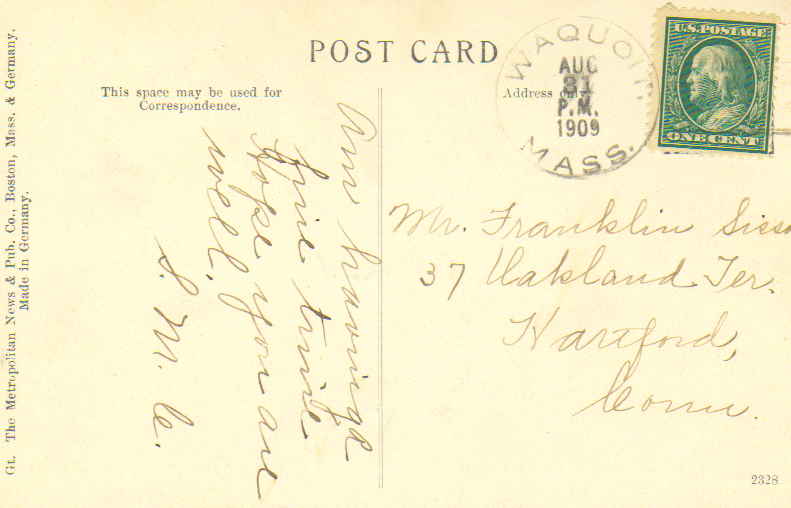 POST CARD
This space may be used for
Correspondence.
Address only
WAQUOIT,
AUG
31
P.M.
1909
MASS.
U.S. POSTAGE
ONE CENT
Am having
fine time
Hope you are
well.
S. M. C.
Mr. Franklin Sisso
37 Oakland Ter.
Hartford,
Conn.
Gt. The Metropolitan News & Pub. Co., Boston, Mass. & Germany.
Made in Germany.
2328